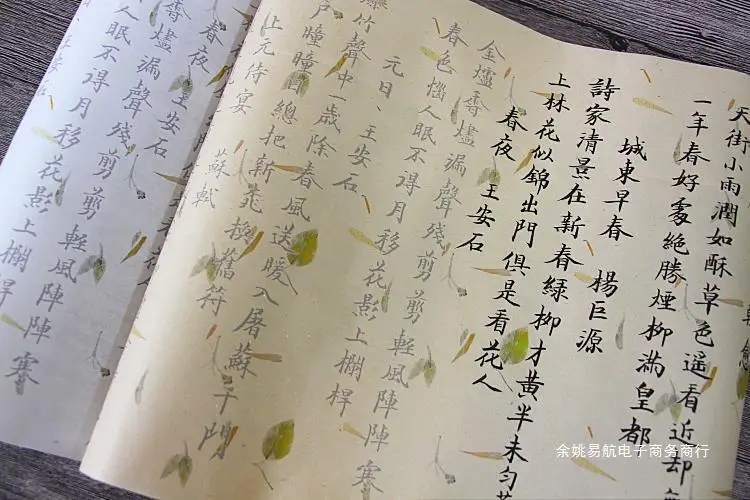 天街小雨潤如酥草色遥看近却
一年春好處絕勝煙柳滿皇都
城東早春 楊巨源
詩家清景在新春綠柳才黃半未勻
上林花似錦出門俱是看花人
春夜 王安石
金爐香燼漏聲殘剪剪輕風陣陣寒
春色惱人眠不得月移花影上欄桿
元日、王安石
爆竹聲中一歲除春風送暖入屠蘇千門
戶曈曈日總把新桃換舊符
上元侍宴 蘇軾
春夜 王安石
香燼漏聲殘剪剪輕風陣陣寒
人眠不得月移花影上欄桿
王安石
余姚易航电子商务商行